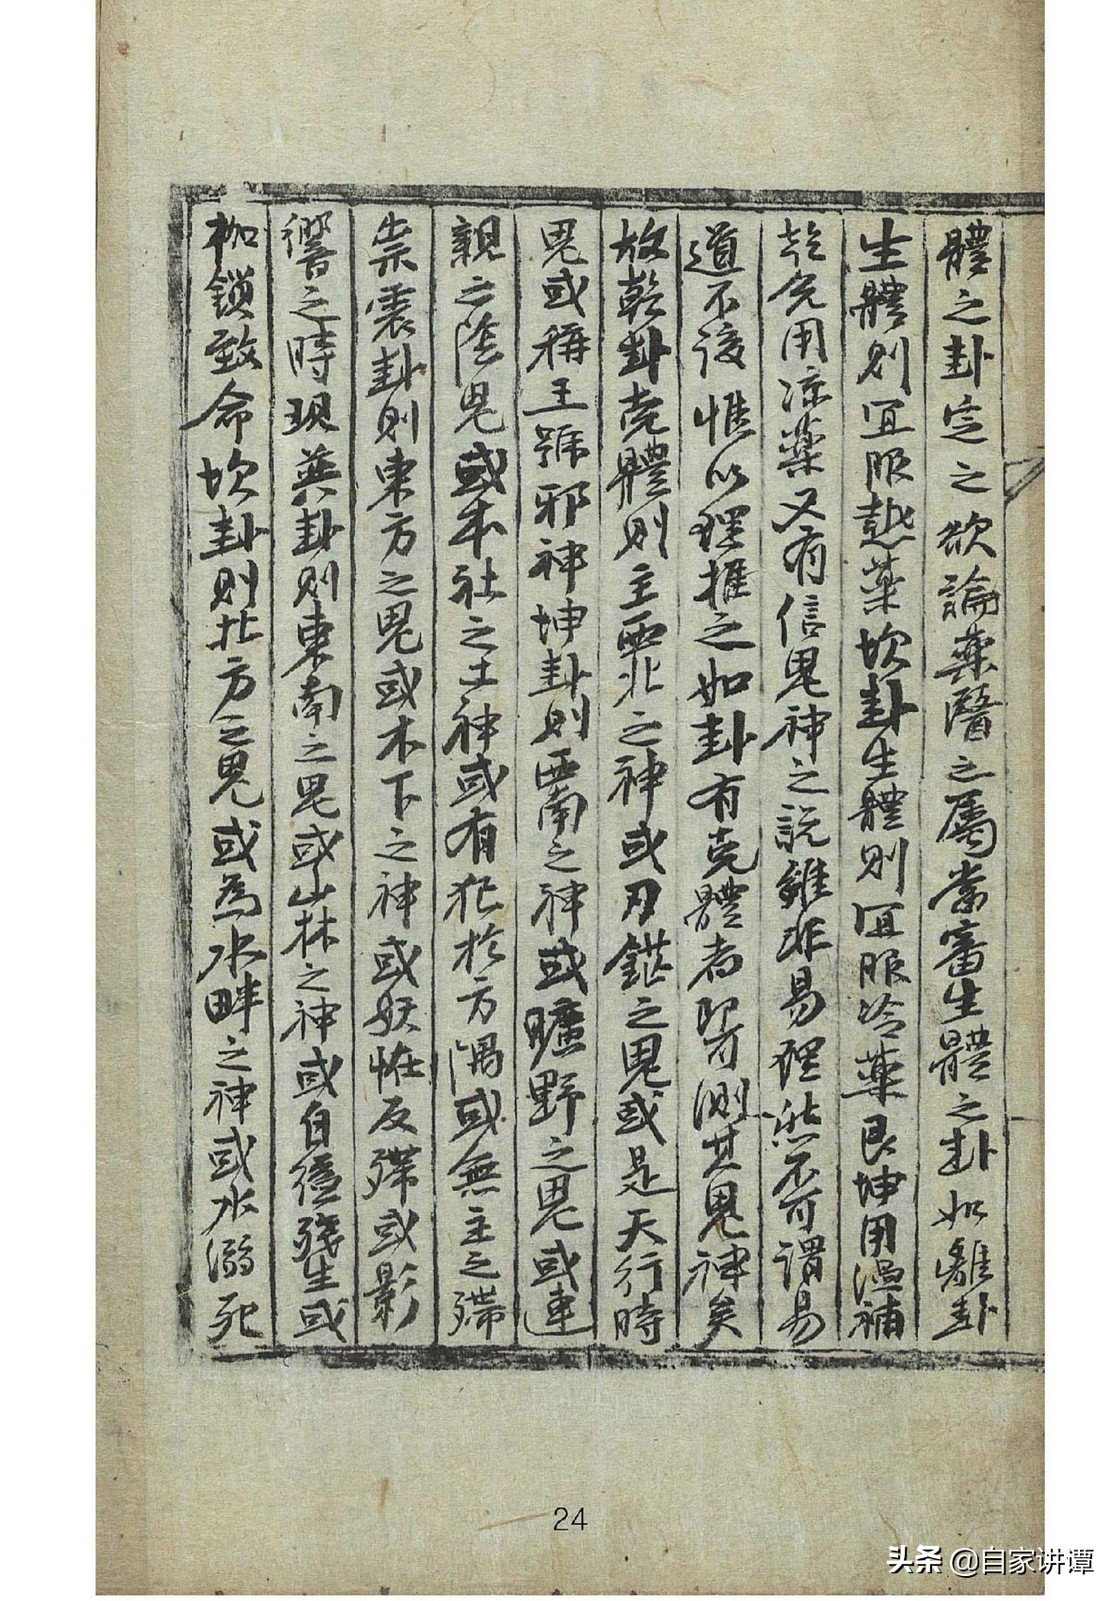 體之卦定之欲論藥醫之屬當審生體之卦如離卦
生體則宜服熱藥坎卦生體則宜服冷藥艮坤用溫補
乾兌用涼藥又有信鬼神之說雖非易理然不可謂易
道不該惟以理推之如卦有克體者即可測其鬼神矣
故乾卦克體則主西北之神或刀鎗之鬼或是天行時
鬼或稱王號邪神坤卦則西南之神或曠野之鬼或連
親之陰鬼或本社之土神或有犯於方隅或無主之殢
祟震卦則東方之鬼或木下之神或妖怪反殢或影
響之時現巽卦則東南之鬼或山林之神或自縊殘生或
枷鎖致命坎卦則北方之鬼或為水畔之神或水溺死
24
头条 @自家讲谭